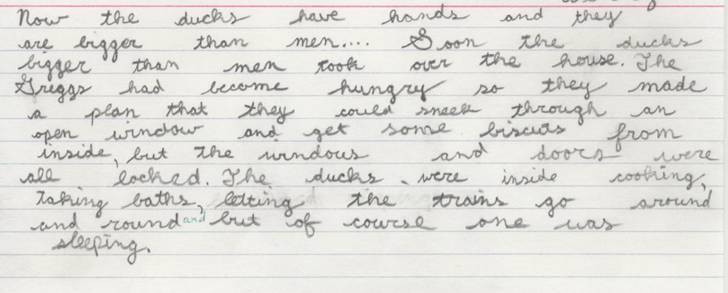 Now the ducks have hands and they
are bigger than men.... Soon the ducks
bigger than men took over the house. The
Greggs had become hungry so they made
a plan that they could sneek through an
open window and get some biscuts from
inside, but the windows and doors were
all locked. The ducks were inside cooking,
taking baths, letting the trains go around
and round and but of course one was
sleeping.